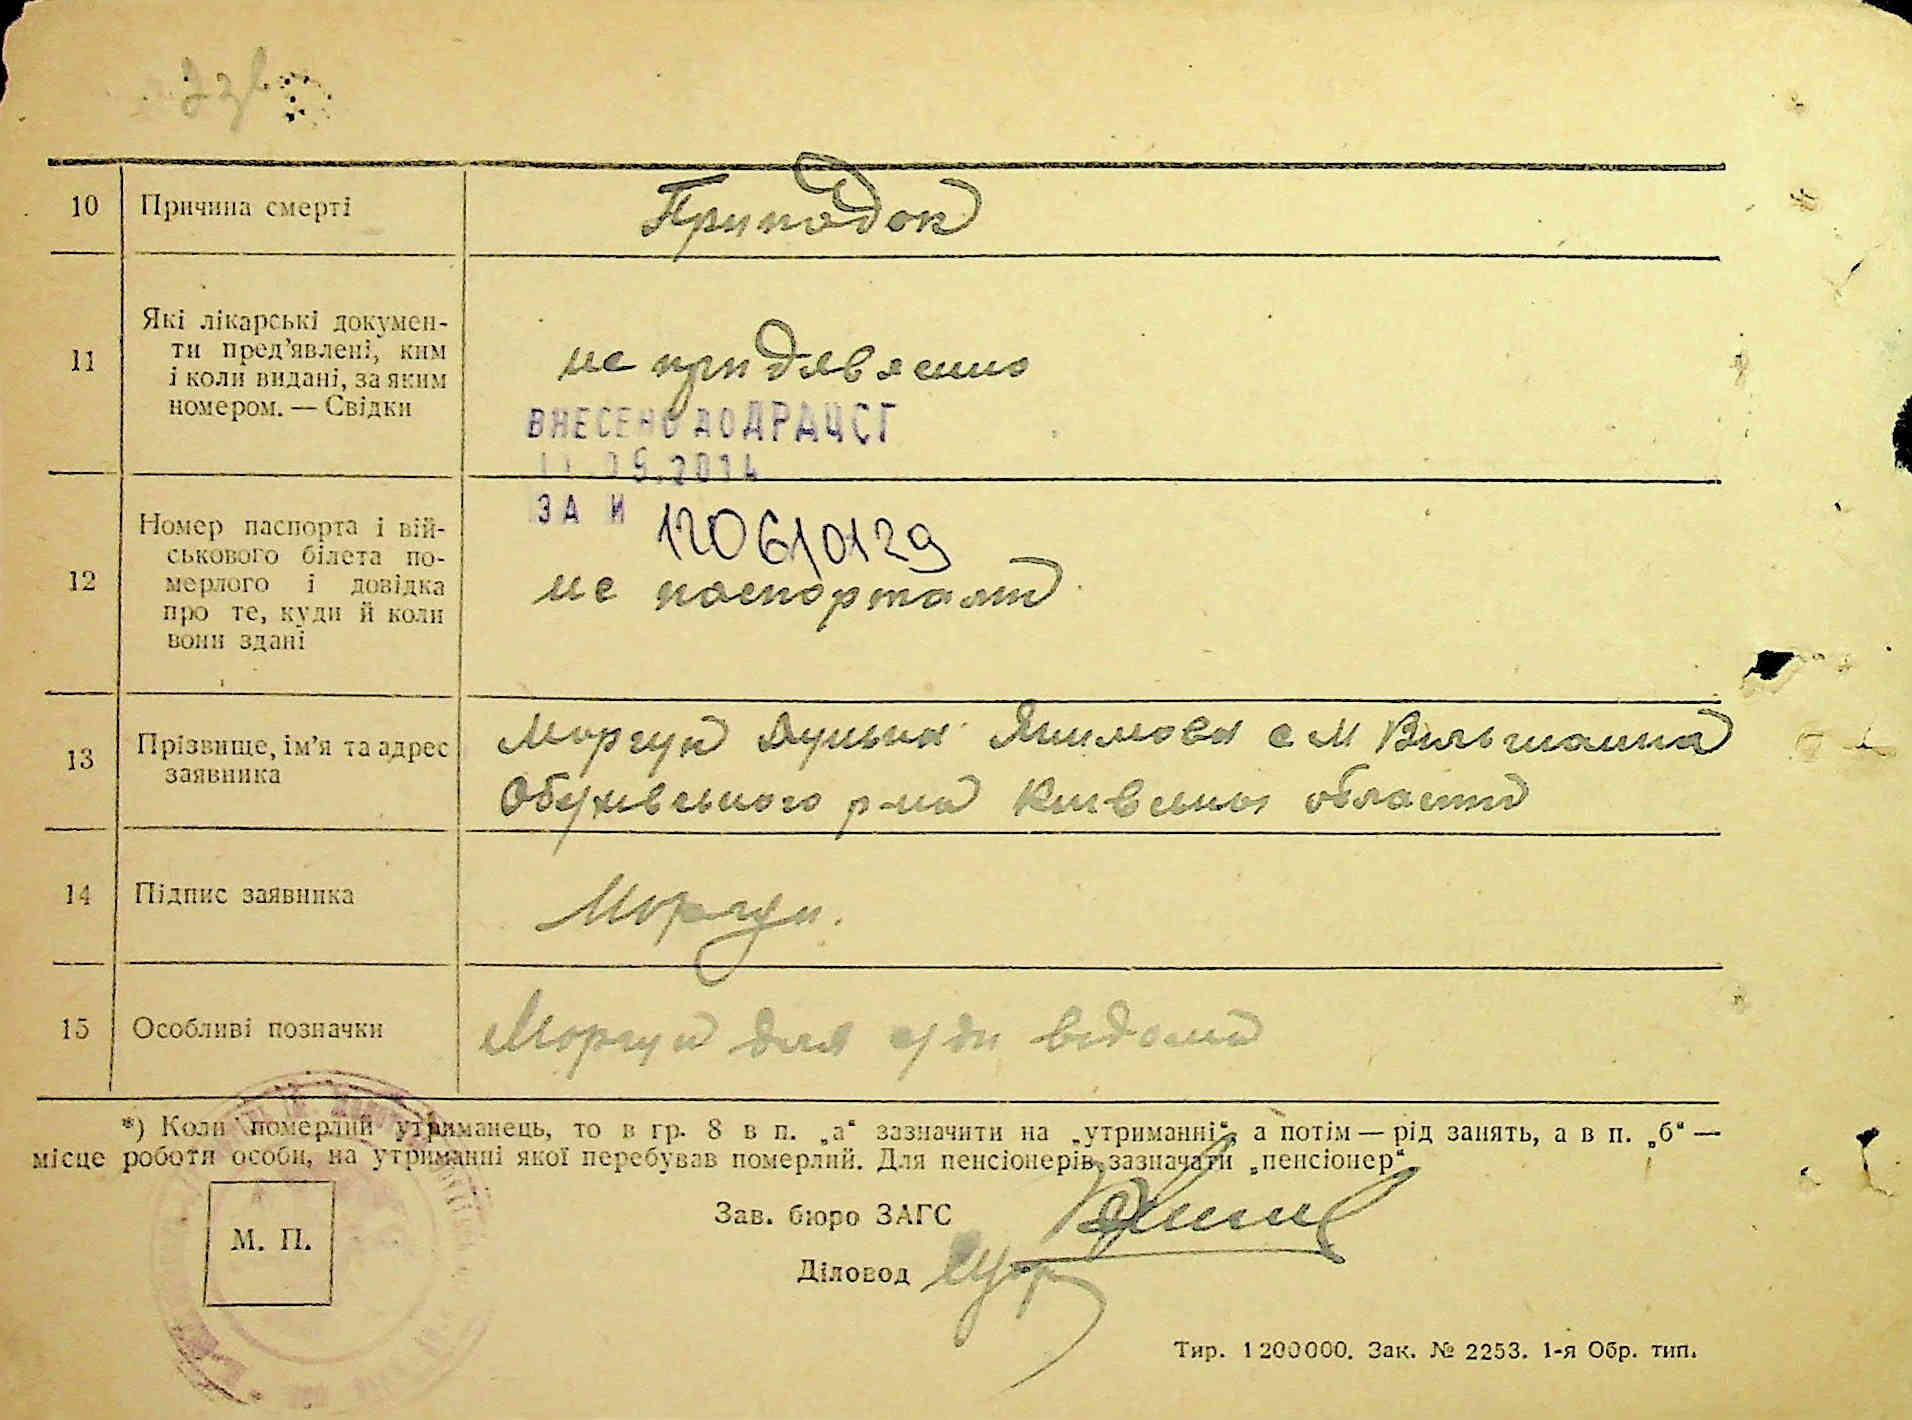 10 Причина смерті Припадок
11 Які лікарські докумен-
ти пред'явлені, ким
і коли видані, за яким
номером. — Свідки
не придявлено
ВНЕСЕНО ДО ДРАЦСГ
09.2014
ЗА И 120610129
12 Номер паспорта і вій-
ськового білета по-
мерлого і довідка
про те, куди й коли
вони здані
не паспорта
13 Прізвище, ім'я та адрес
заявника
Моргун Якимова с М Вільшанка
Обухівського р-на Київської області
14 Підпис заявника Моргун.
15 Особливі позначки Моргун для
*) Коли померлий утриманець, то в гр. 8 в п. „а“ зазначити на „утриманні“, а потім — рід занять, а в п. „б“ —
місце роботи особи, на утриманні якої перебував померлий. Для пенсіонерів зазначати „пенсіонер“.
М. П.
Зав. бюро ЗАГС
Діловод
Тир. 1200000. Зак. № 2253. 1-я Обр. тип.